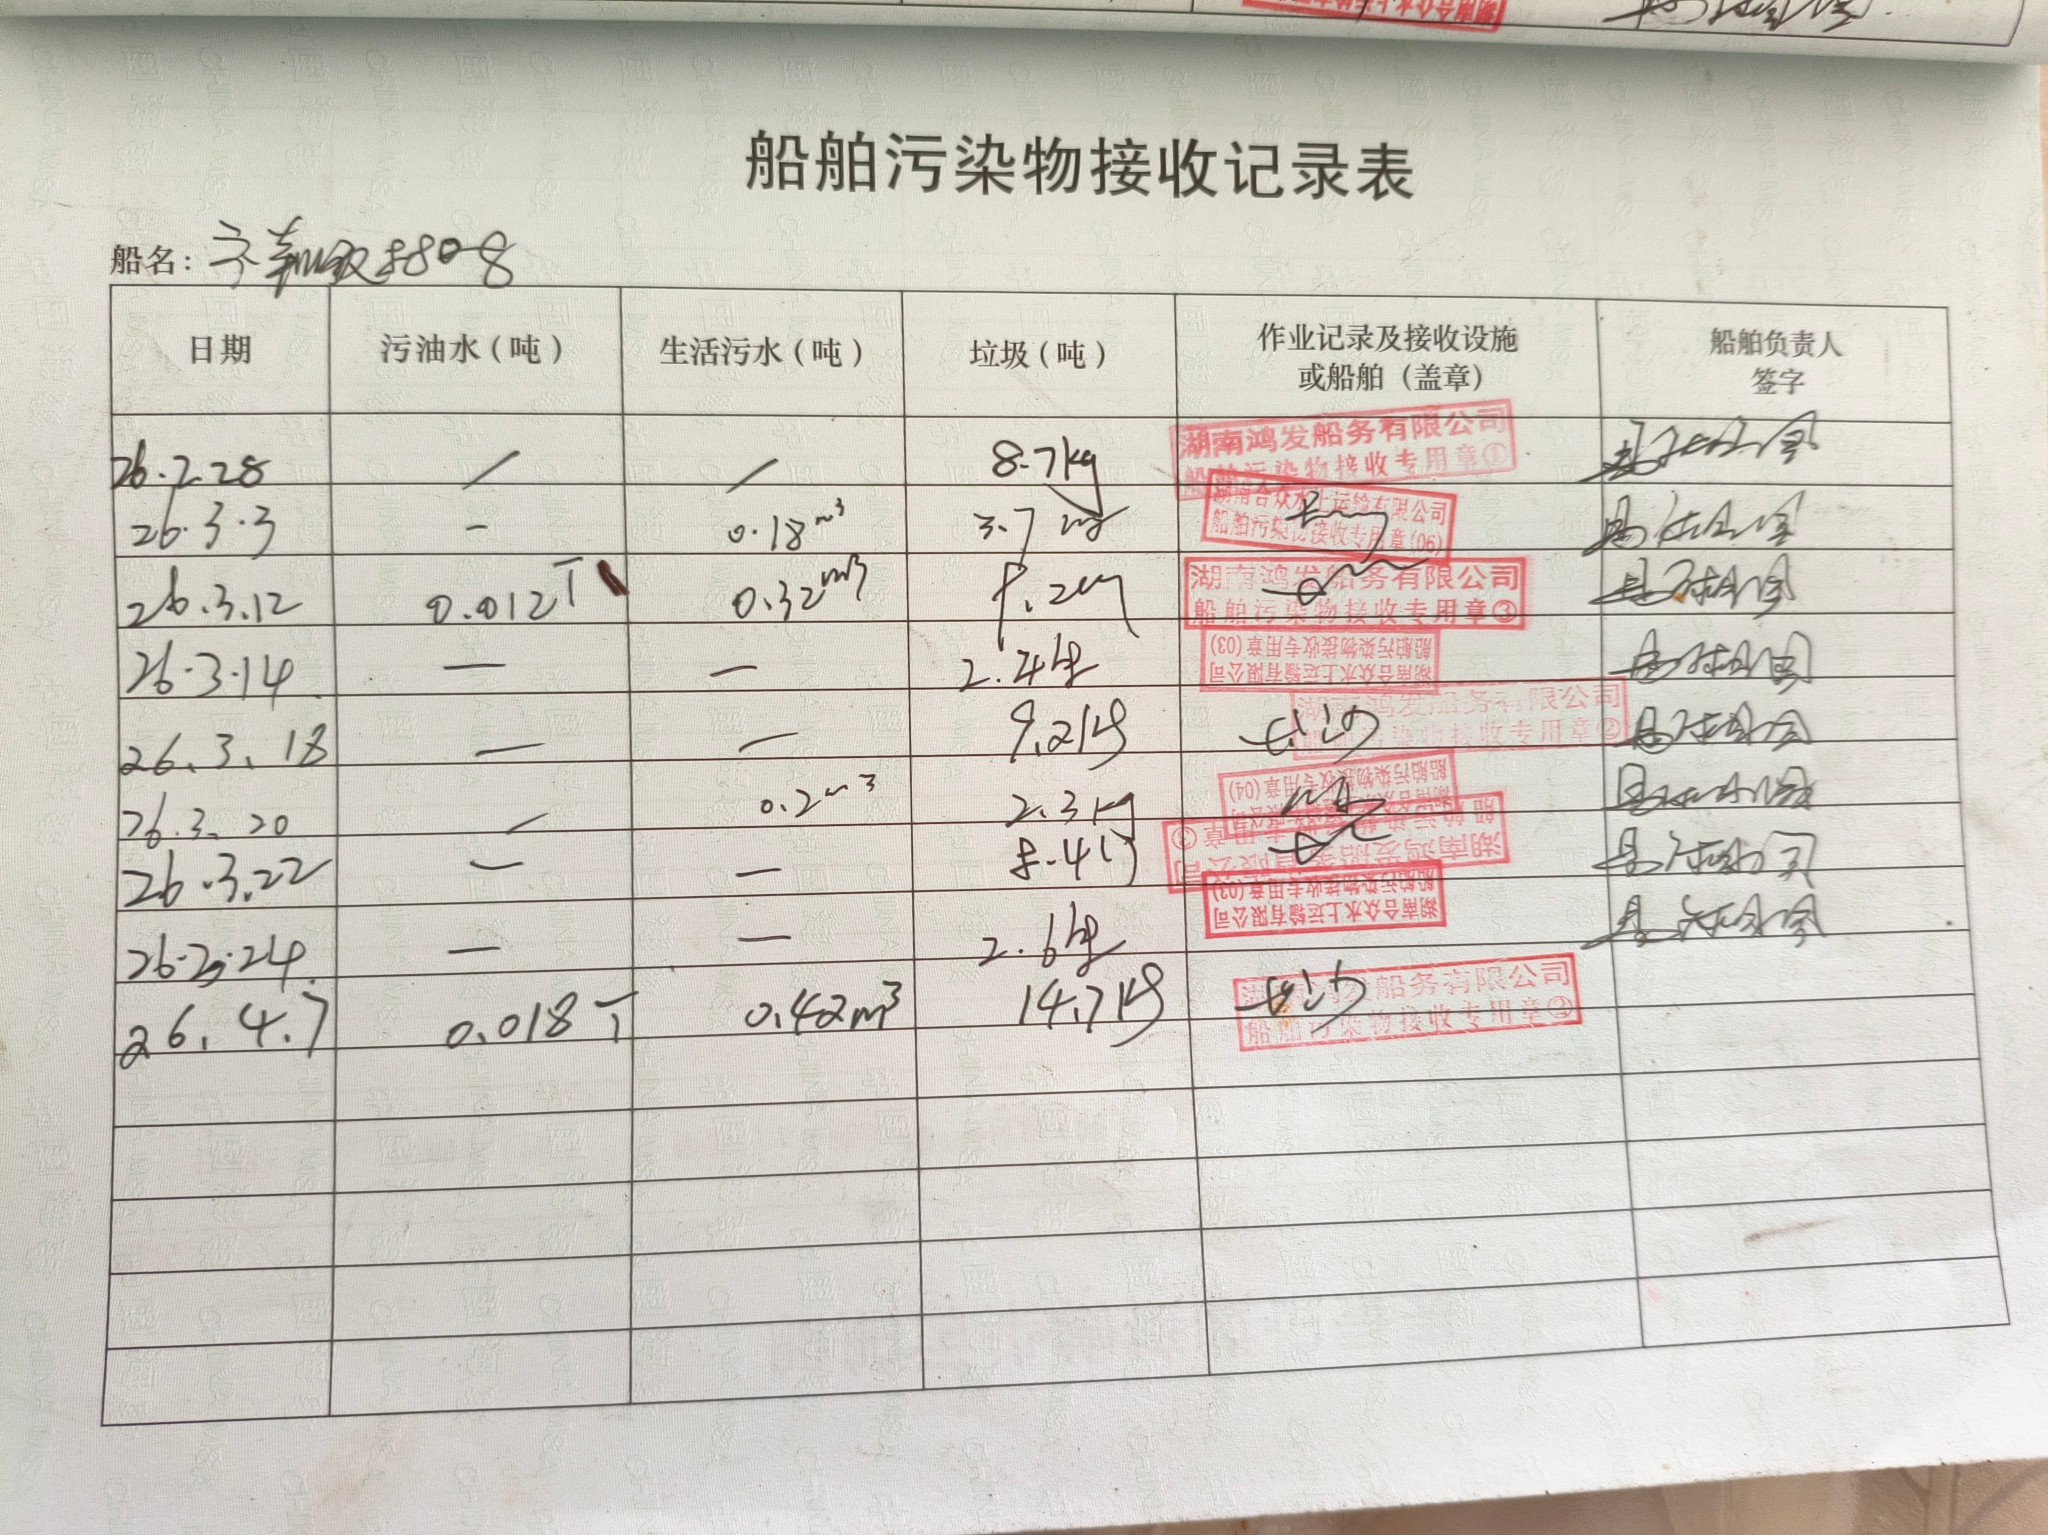 船舶污染物接收记录表
船名：
日期 污油水（吨） 生活污水（吨） 垃圾（吨） 作业记录及接收设施或船舶（盖章） 船舶负责人签字
26.2.28 / / 8.7kg 湖南鸿发船务有限公司 船舶污染物接收专用章①
26.3.3 - 0.18m³ 3.7kg 湖南合众水上运输有限公司 船舶污染物接收专用章(06)
26.3.12 0.012T 0.32m³ 8.2kg 湖南鸿发船务有限公司 船舶污染物接收专用章③
26.3.14 — — 2.4kg 湖南合众水上运输有限公司 船舶污染物接收专用章(03)
26.3.18 — — 9.2kg 长沙 湖南鸿发船务有限公司 船舶污染物接收专用章②
26.3.20 / 0.2m³ 2.3kg 船舶污染物接收专用章(04)
26.3.22 — — 8.4kg 湖南鸿发船务有限公司 船舶污染物接收专用章
26.3.24 — — 2.6kg 湖南合众水上运输有限公司 船舶污染物接收专用章(03)
26.4.7 0.018T 0.42m³ 14.7kg 长沙 湖南鸿发船务有限公司 船舶污染物接收专用章②